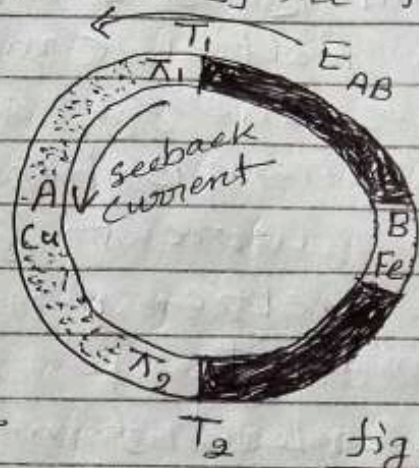 T₁
E_AB
π₁
seeback
current
A
Cu
B
Fe
π₂
T₂
fig